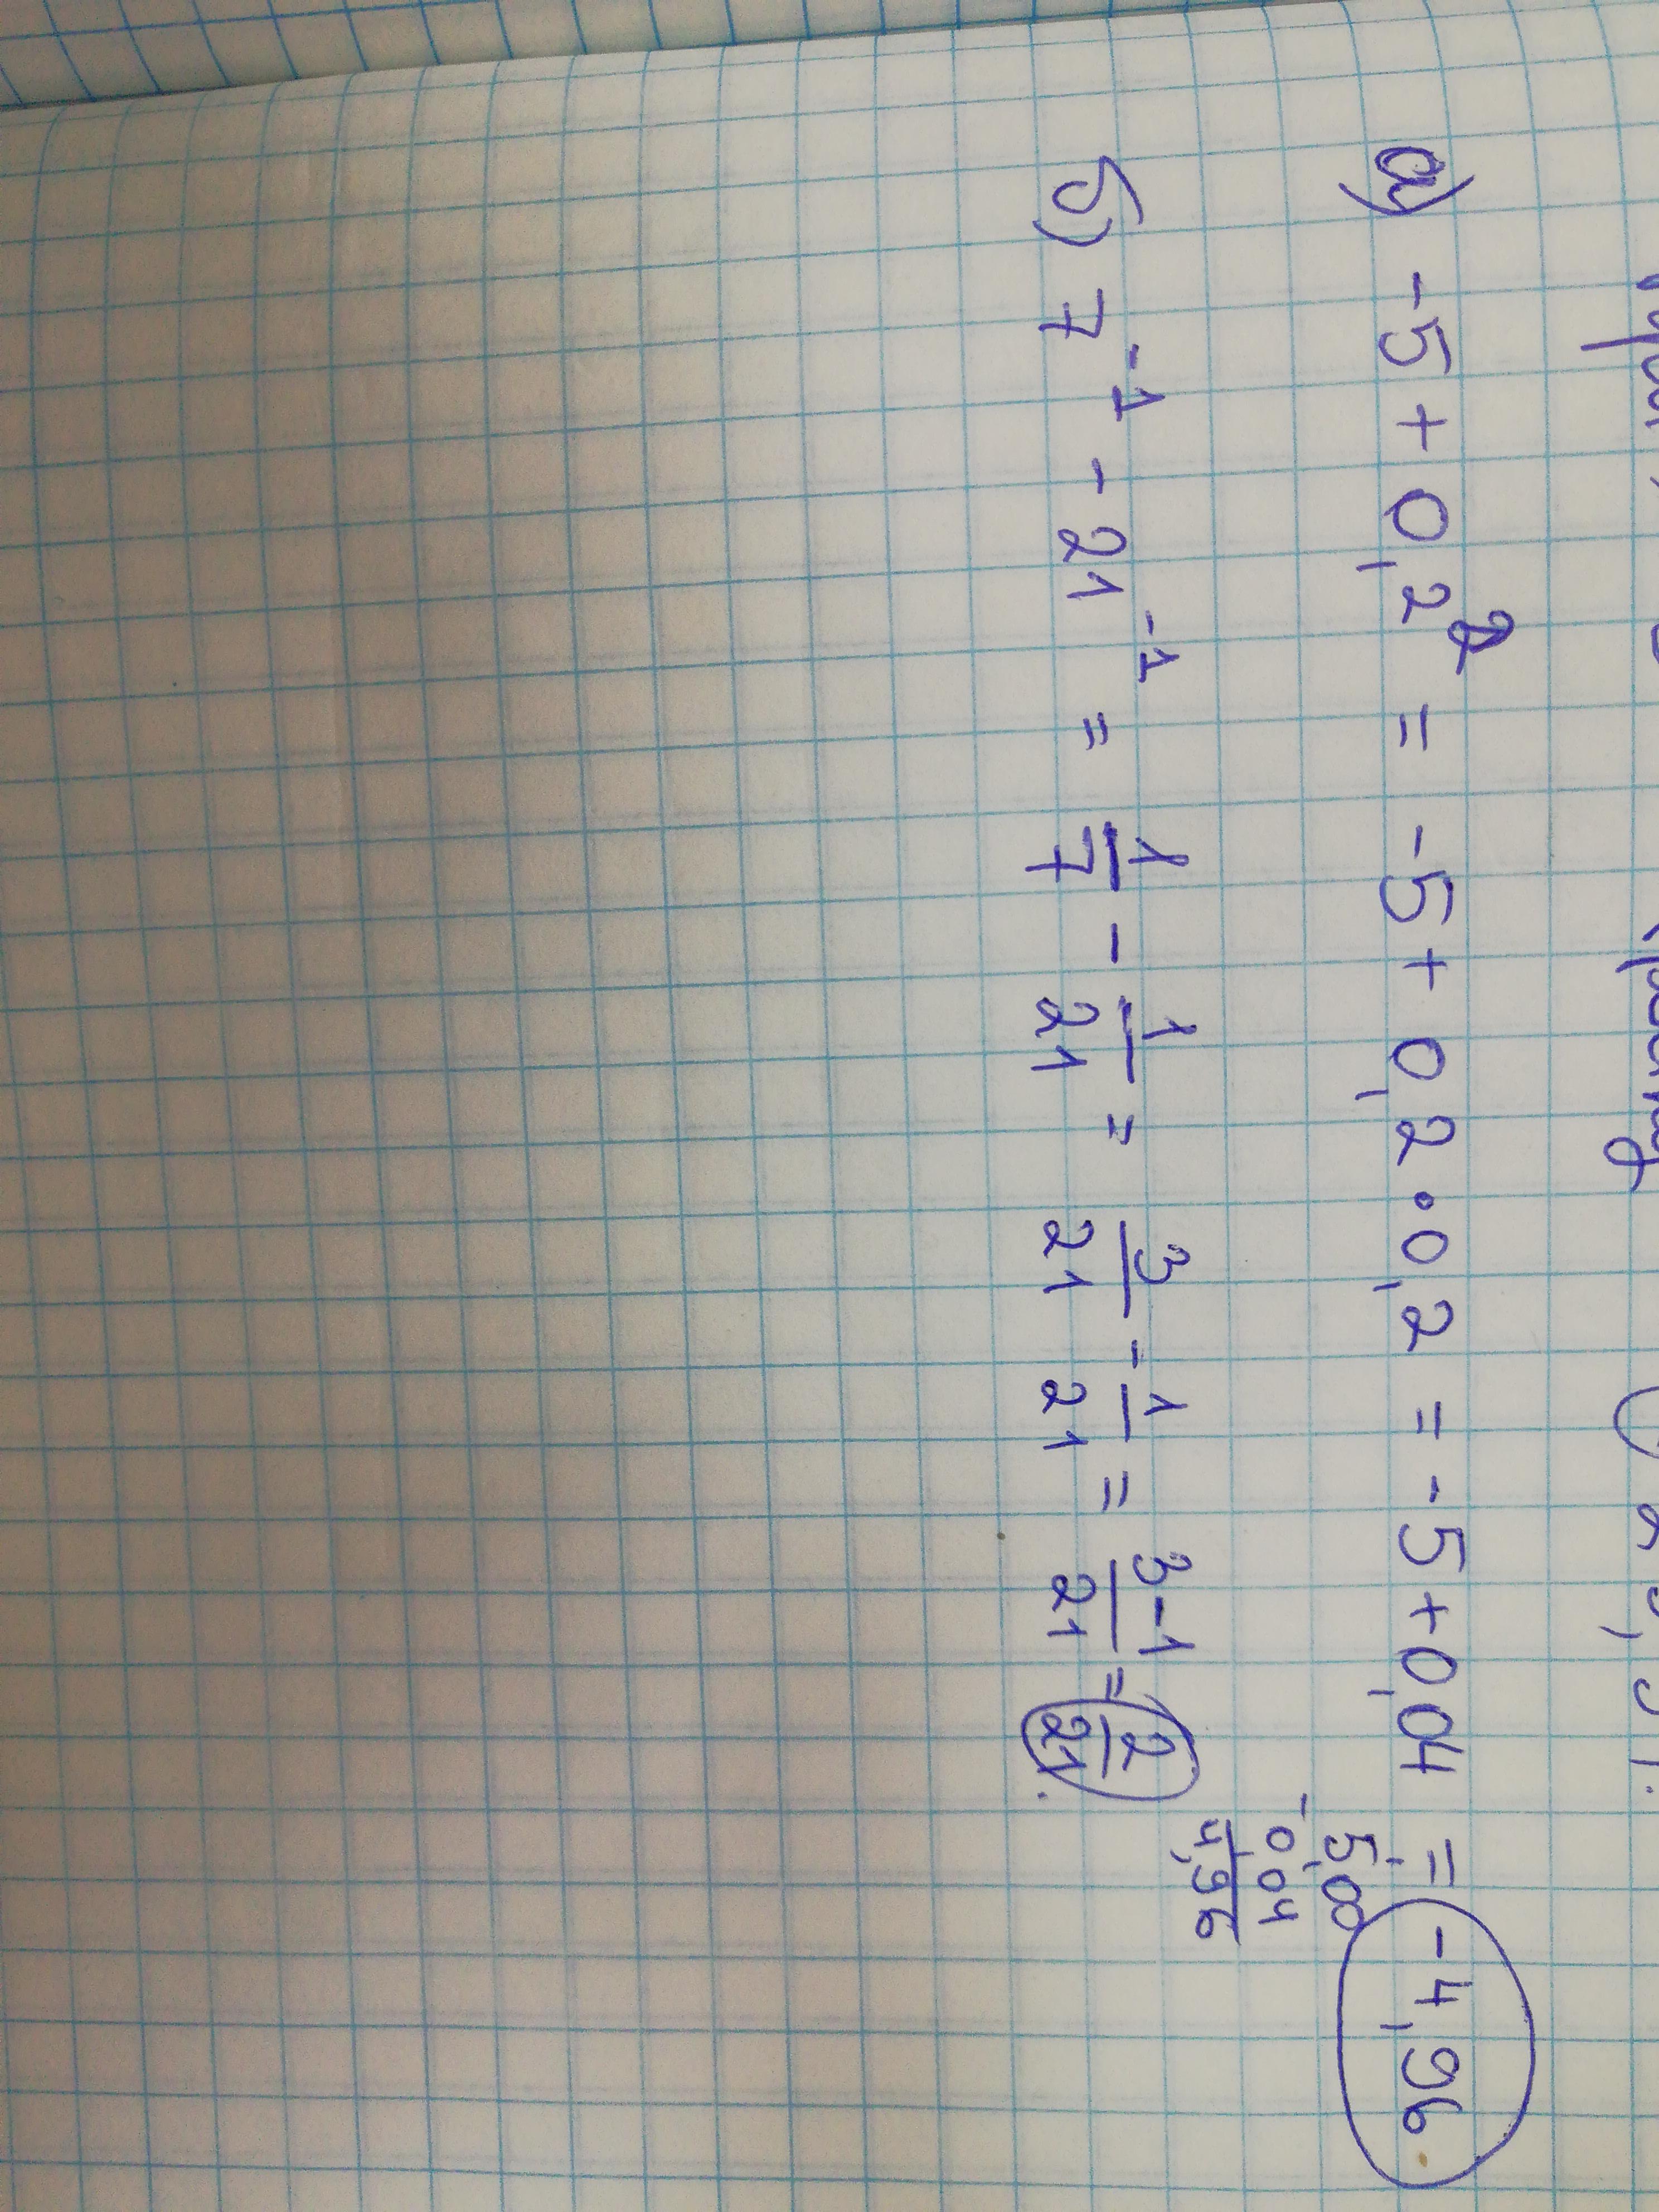 а) -5 + 0,2² = -5 + 0,2 · 0,2 = -5 + 0,04 = -4,96.
5,00
- 0,04
4,96
б) 7⁻¹ - 21⁻¹ = 1/7 - 1/21 = 3/21 - 1/21 = 3-1/21 = 2/21.